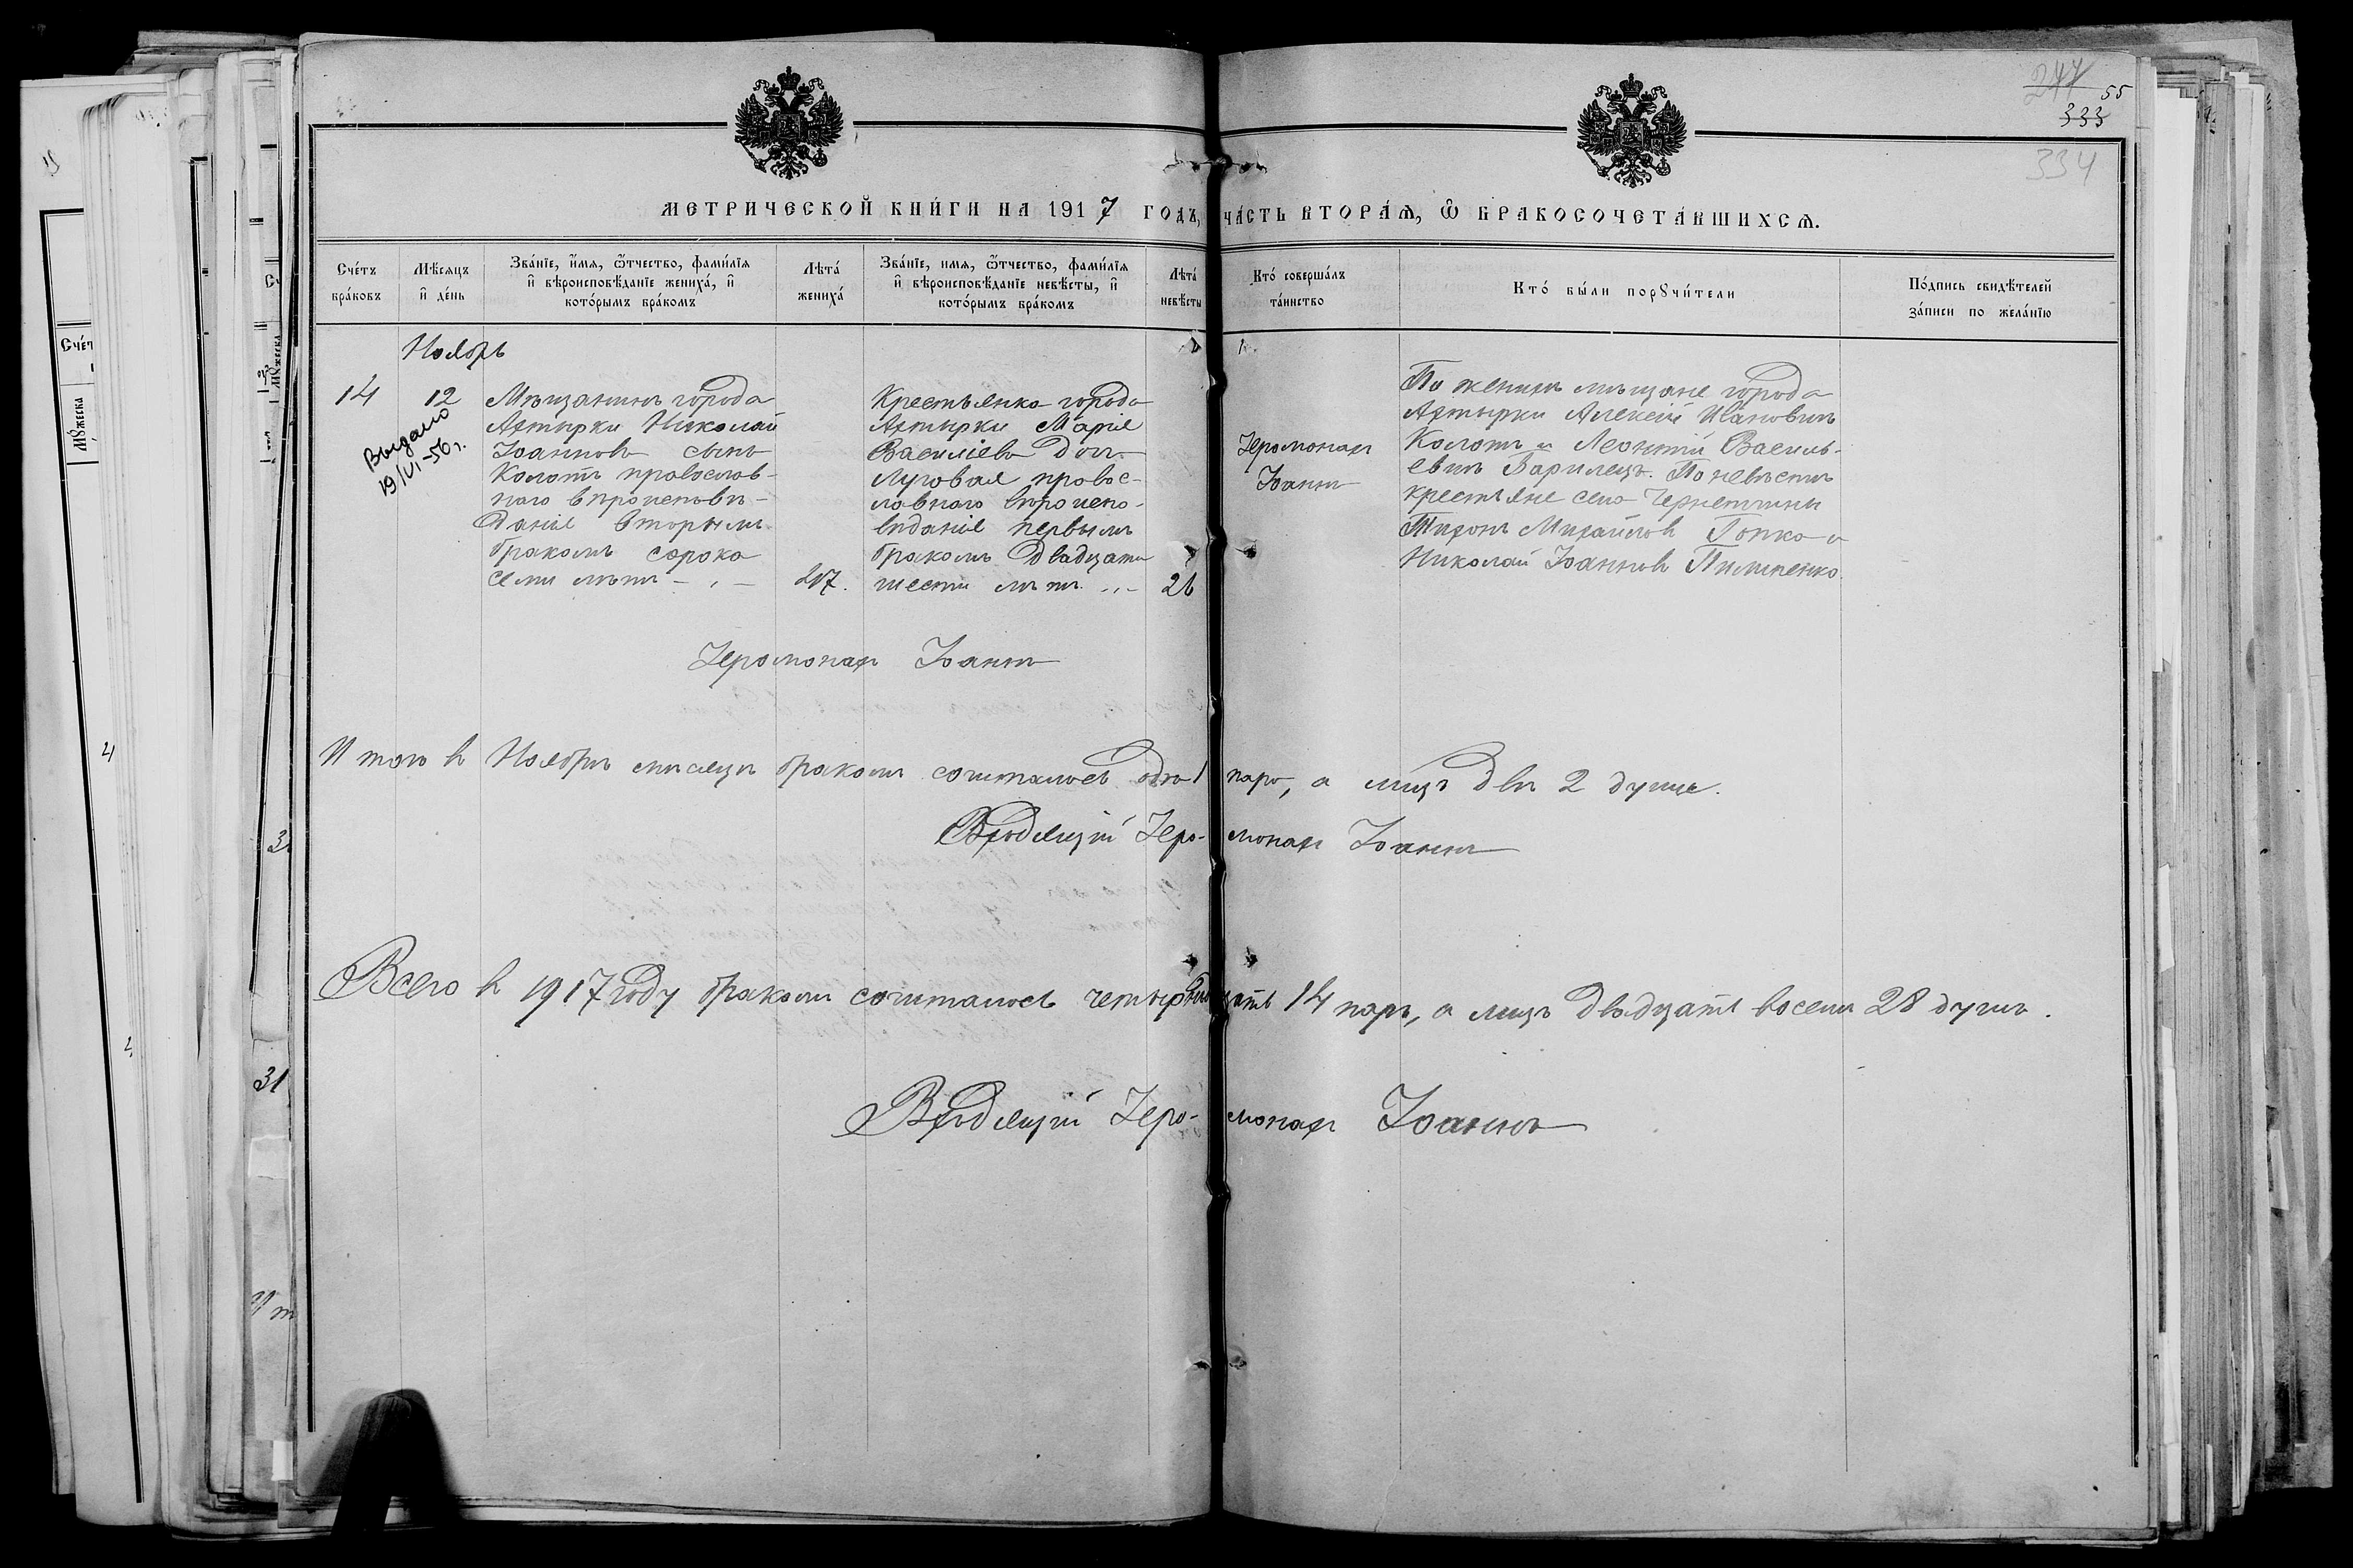 247
55
333
334
МЕТРИЧЕСКОЙ КНИ́ГИ НА 1917 ГОДЪ, ЧА́СТЬ ВТОРА́Ѧ, Ѽ БРАКОСОЧЕТА́ВШИХСѦ.
Сче́тъ бра́ковъ
Мѣ́сѧцъ и҆ де́нь
Зва́нїе, и҆́мѧ, ѻ҆́тчество, фами́лїѧ и҆ вѣроисповѣ́данїе жениха́, и҆ кото́рымъ бра́комъ
Лѣта́ жениха́
Зва́нїе, имѧ, ѻ҆́тчество, фами́лїѧ и҆ вѣроисповѣ́данїе невѣ́сты, и҆ кото́рымъ бра́комъ
Лѣта́ невѣ́сты
Кто́ соверша́лъ та́инство
Кто́ бы́ли порꙋчи́тели
По́дпись свидѣ́телей за́писи по жела́нїю
Ноябрь
14
12
Выдано
19/VI-56 г.
Мѣщанинъ города
Ахтырки Николай
Іоанновъ сынъ
Колотъ православ-
наго вѣроисповѣ-
данія вторымъ
бракомъ сорока
семи лѣтъ
47.
Крестьянка города
Ахтырки Марія
Василіева доч.
Луговая правос-
лавнаго вѣроиспо-
вѣданія первымъ
бракомъ двадцати
шести лѣтъ.
26
Іеромонах
Іоаннъ
По женихѣ мѣщане города
Ахтырки Алексій Ивановичъ
Колотъ и Леонтій Василь-
евичъ Гарилецъ. По невѣстѣ
крестьяне села Чернетчины
Тихонъ Михайловъ Гопка и
Николай Іоанновъ Пилипенко.
Іеромонах Іоаннъ
Итого в Ноябрѣ мѣсяцѣ бракомъ сочиталось одна 1 пара, а лицъ двѣ 2 души.
Входящій Іеро-монах Іоаннъ
Всего в 1917 году бракомъ сочиталось четырнадцать 14 паръ, а лицъ двадцать восемь 28 душъ.
Входящій Іеро-монах Іоаннъ
Сче́т
Мꙋ́жеска
4
4
31